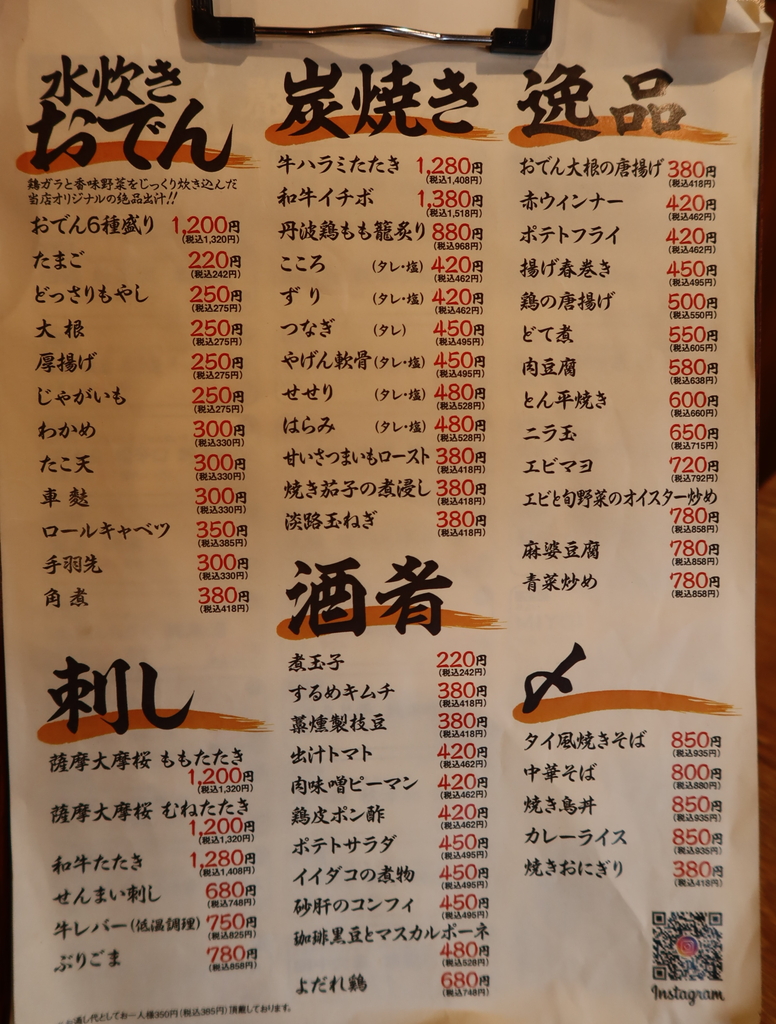 水炊き
おでん
鶏ガラと香味野菜をじっくり炊き込んだ
当店オリジナルの絶品出汁!!
おでん6種盛り 1,200円
(税込1,320円)
たまご 220円
(税込242円)
どっさりもやし 250円
(税込275円)
大根 250円
(税込275円)
厚揚げ 250円
(税込275円)
じゃがいも 250円
(税込275円)
わかめ 300円
(税込330円)
たこ天 300円
(税込330円)
車麩 300円
(税込330円)
ロールキャベツ 350円
(税込385円)
手羽先 300円
(税込330円)
角煮 380円
(税込418円)
刺し
薩摩大摩桜 ももたたき
1,200円
(税込1,320円)
薩摩大摩桜 むねたたき
1,200円
(税込1,320円)
和牛たたき 1,280円
(税込1,408円)
せんまい刺し 680円
(税込748円)
牛レバー(低温調理) 750円
(税込825円)
ぶりごま 780円
(税込858円)
炭焼き
牛ハラミたたき 1,280円
(税込1,408円)
和牛イチボ 1,380円
(税込1,518円)
丹波鶏もも籠炙り 880円
(税込968円)
こころ (タレ・塩) 420円
(税込462円)
ずり (タレ・塩) 420円
(税込462円)
つなぎ (タレ) 450円
(税込495円)
やげん軟骨(タレ・塩) 450円
(税込495円)
せせり (タレ・塩) 480円
(税込528円)
はらみ (タレ・塩) 480円
(税込528円)
甘いさつまいもロースト 380円
(税込418円)
焼き茄子の煮浸し 380円
(税込418円)
淡路玉ねぎ 380円
(税込418円)
酒肴
煮玉子 220円
(税込242円)
するめキムチ 380円
(税込418円)
藁燻製枝豆 380円
(税込418円)
出汁トマト 420円
(税込462円)
肉味噌ピーマン 420円
(税込462円)
鶏皮ポン酢 420円
(税込462円)
ポテトサラダ 450円
(税込495円)
イイダコの煮物 450円
(税込495円)
砂肝のコンフィ 450円
(税込495円)
珈琲黒豆とマスカルポーネ
480円
(税込528円)
よだれ鶏 680円
(税込748円)
逸品
おでん大根の唐揚げ 380円
(税込418円)
赤ウィンナー 420円
(税込462円)
ポテトフライ 420円
(税込462円)
揚げ春巻き 450円
(税込495円)
鶏の唐揚げ 500円
(税込550円)
どて煮 550円
(税込605円)
肉豆腐 580円
(税込638円)
とん平焼き 600円
(税込660円)
ニラ玉 650円
(税込715円)
エビマヨ 720円
(税込792円)
エビと旬野菜のオイスター炒め
780円
(税込858円)
麻婆豆腐 780円
(税込858円)
青菜炒め 780円
(税込858円)
〆
タイ風焼きそば 850円
(税込935円)
中華そば 800円
(税込880円)
焼き鳥丼 850円
(税込935円)
カレーライス 850円
(税込935円)
焼きおにぎり 380円
(税込418円)
Instagram
通し代としてお一人様350円(税込385円)頂戴しております。